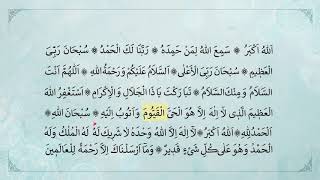 اَللهُ اَكْبَرُ ۞ سَمِعَ اللهُ لِمَنْ حَمِدَهُ ۞ رَبَّنَا لَكَ الْحَمْدُ ۞ سُبْحَانَ رَبِّىَ
الْعَظِيْمِ ۞ سُبْحَانَ رَبِّىَ الْاَعْلٰى ۞ اَلسَّلَامُ عَلَيْكُمْ وَرَحْمَةُ اللهِ ۞ اَللّٰهُمَّ اَنْتَ
السَّلَامُ وَمِنْكَ السَّلَامُ ۞ تَبَارَكْتَ يَا ذَا الْجَلَالِ وَالْاِكْرَامِ ۞ اَسْتَغْفِرُ اللهَ
الْعَظِيْمَ الَّذِى لَا اِلٰهَ اِلَّا هُوَ الْحَىَّ الْقَيُّوْمَ وَاَتُوْبُ اِلَيْهِ ۞ سُبْحَانَ اللهِ ۞
اَلْحَمْدُ لِلّٰهِ ۞ اَللهُ اَكْبَرُ ۞ لَا اِلٰهَ اِلَّا اللهُ وَحْدَهُ لَا شَرِيْكَ لَهُ لَهُ الْمُلْكُ وَلَهُ
الْحَمْدُ وَهُوَ عَلٰى كُلِّ شَىْءٍ قَدِيْرٌ ۞ وَمَا اَرْسَلْنَاكَ اِلَّا رَحْمَةً لِلْعَالَمِيْنَ